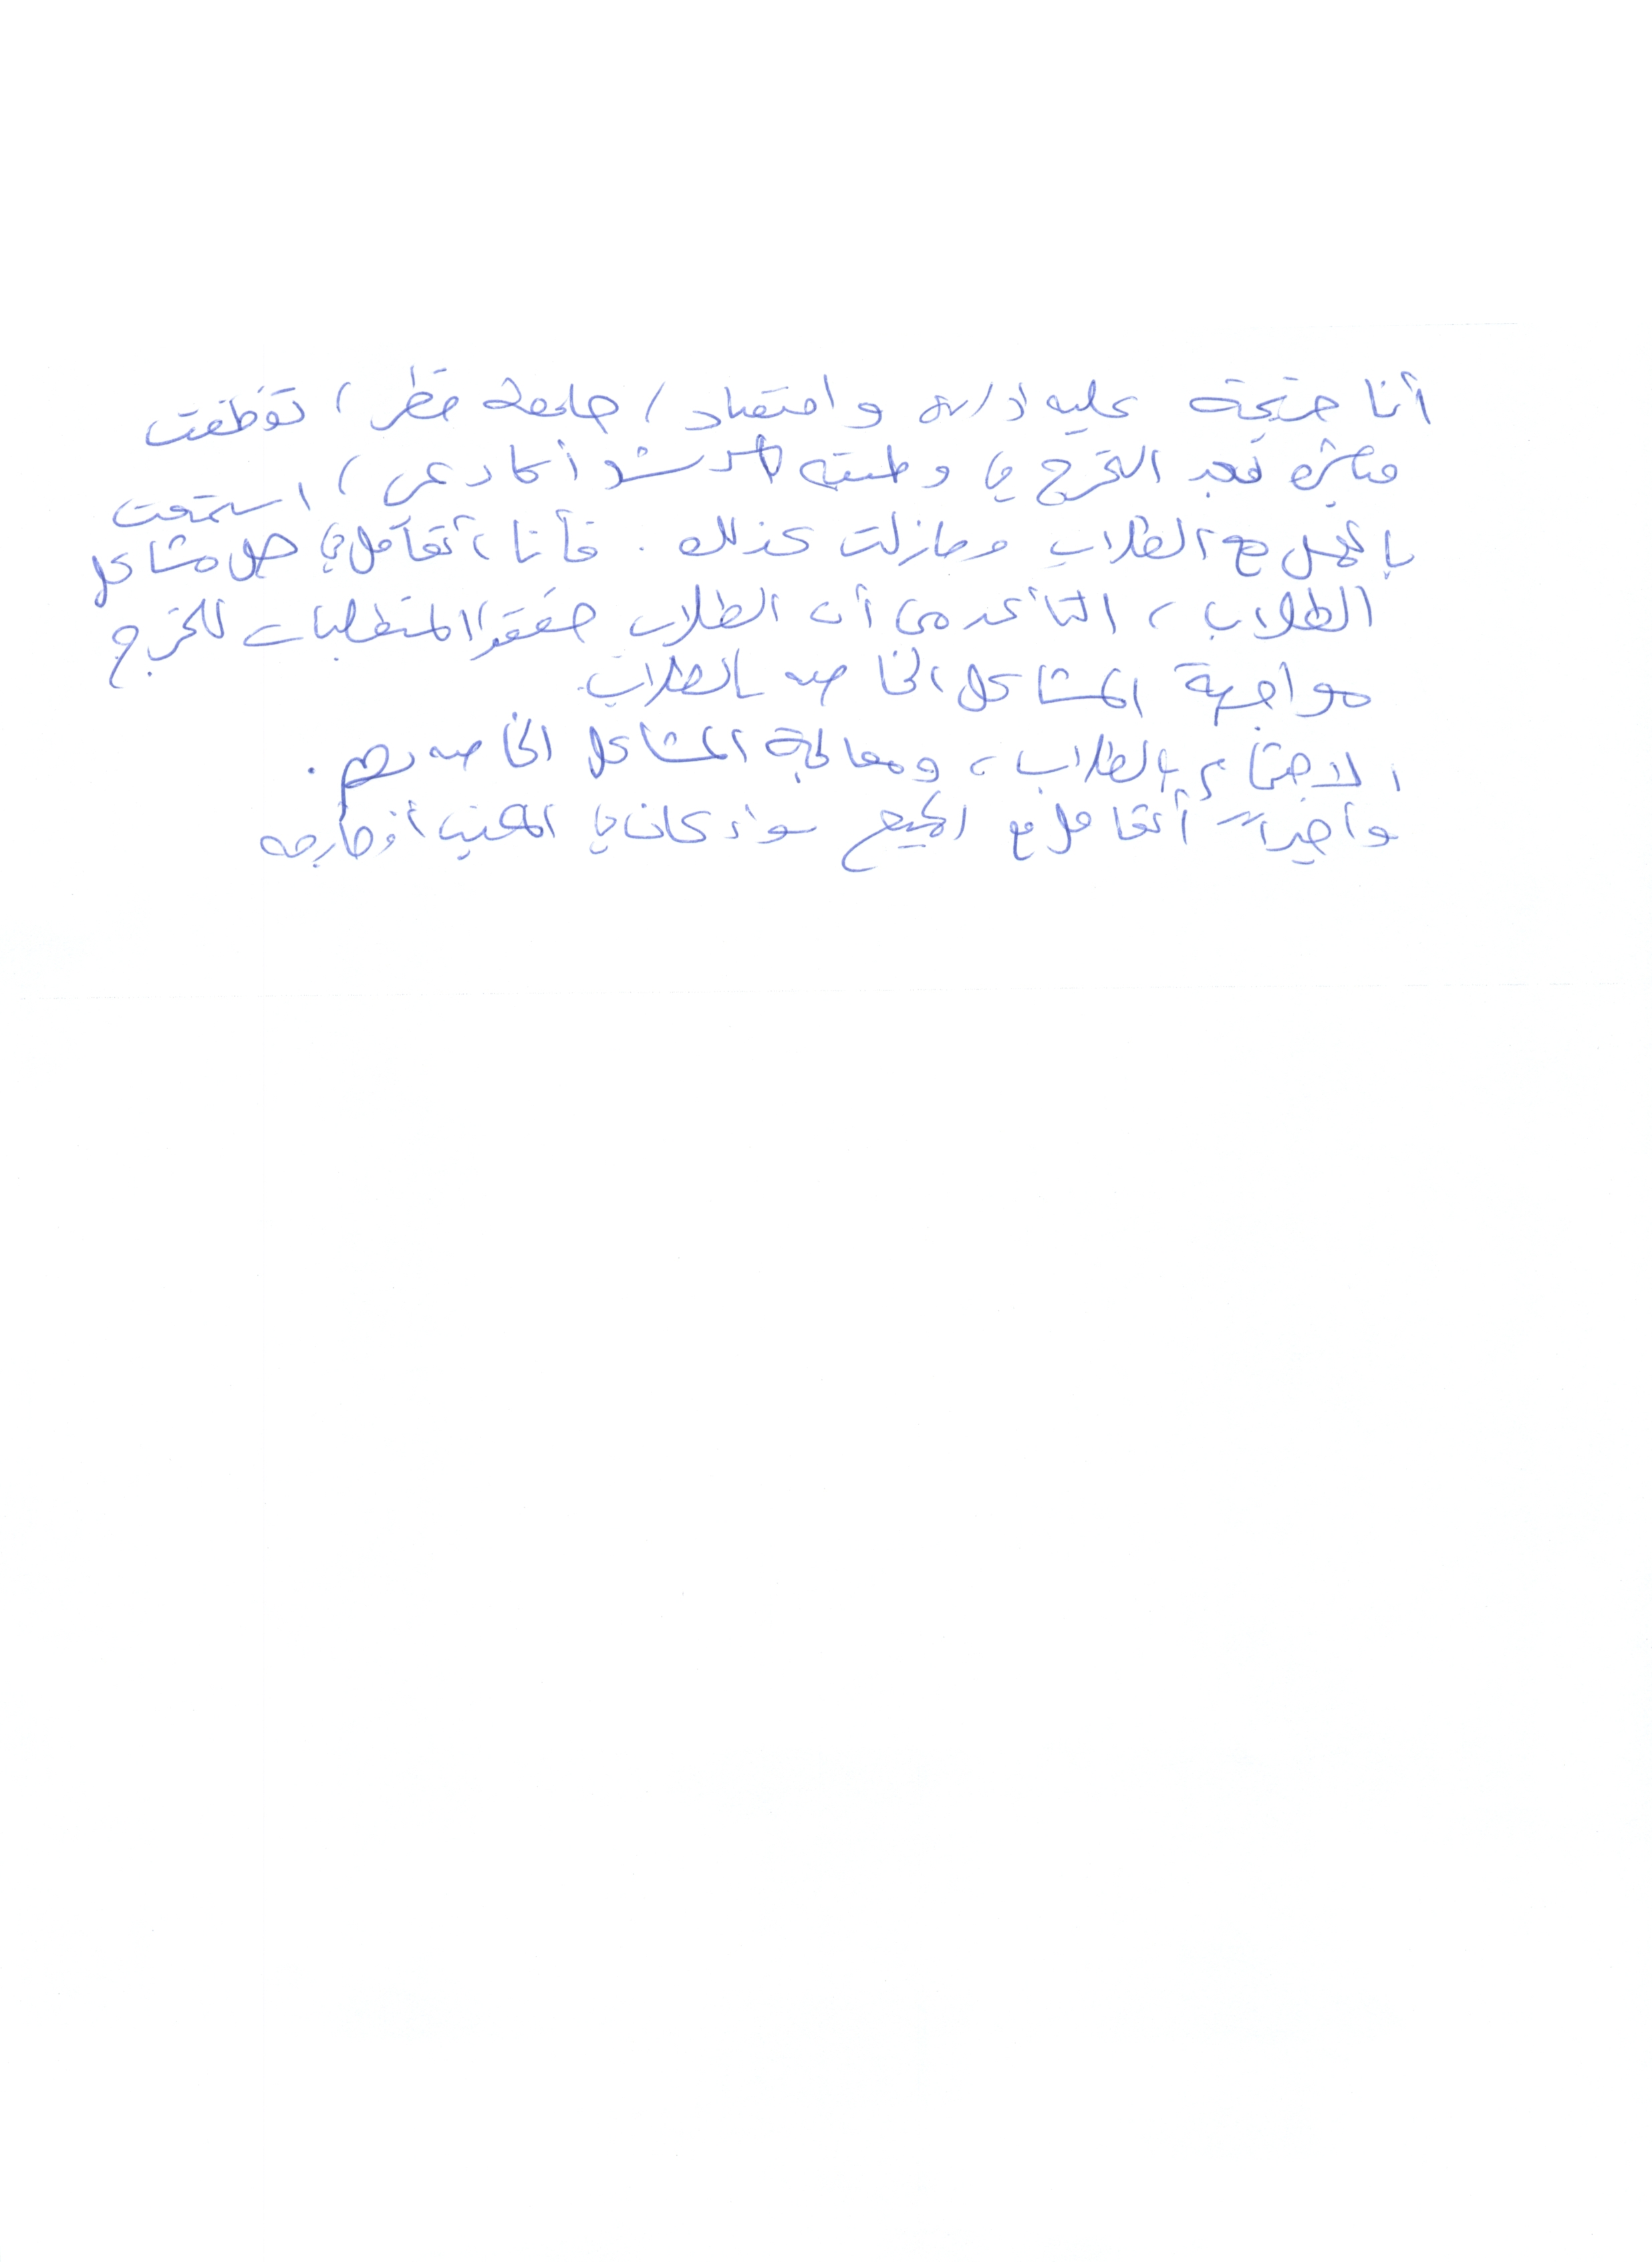 أنا خريجة كلية إدارة واقتصاد / جامعة قطر ، توظفت
مباشرة بعد التخرج في وظيفة مرشد أكاديمي ، استمتعت
بالعمل مع الطلاب ومازلت كذلك . فأنا أتعامل في حل مشاكل
الطلاب ، التأكد من أن الطلاب حققوا المتطلبات للتخرج
مواجهة المشاكل الخاصه بالطلاب .
الاجتماع بالطلاب ، ومعالجة المشاكل الخاصه بهم .
وأخيراً أتعامل مع الجميع سواء كان في المكتب أو خارجه